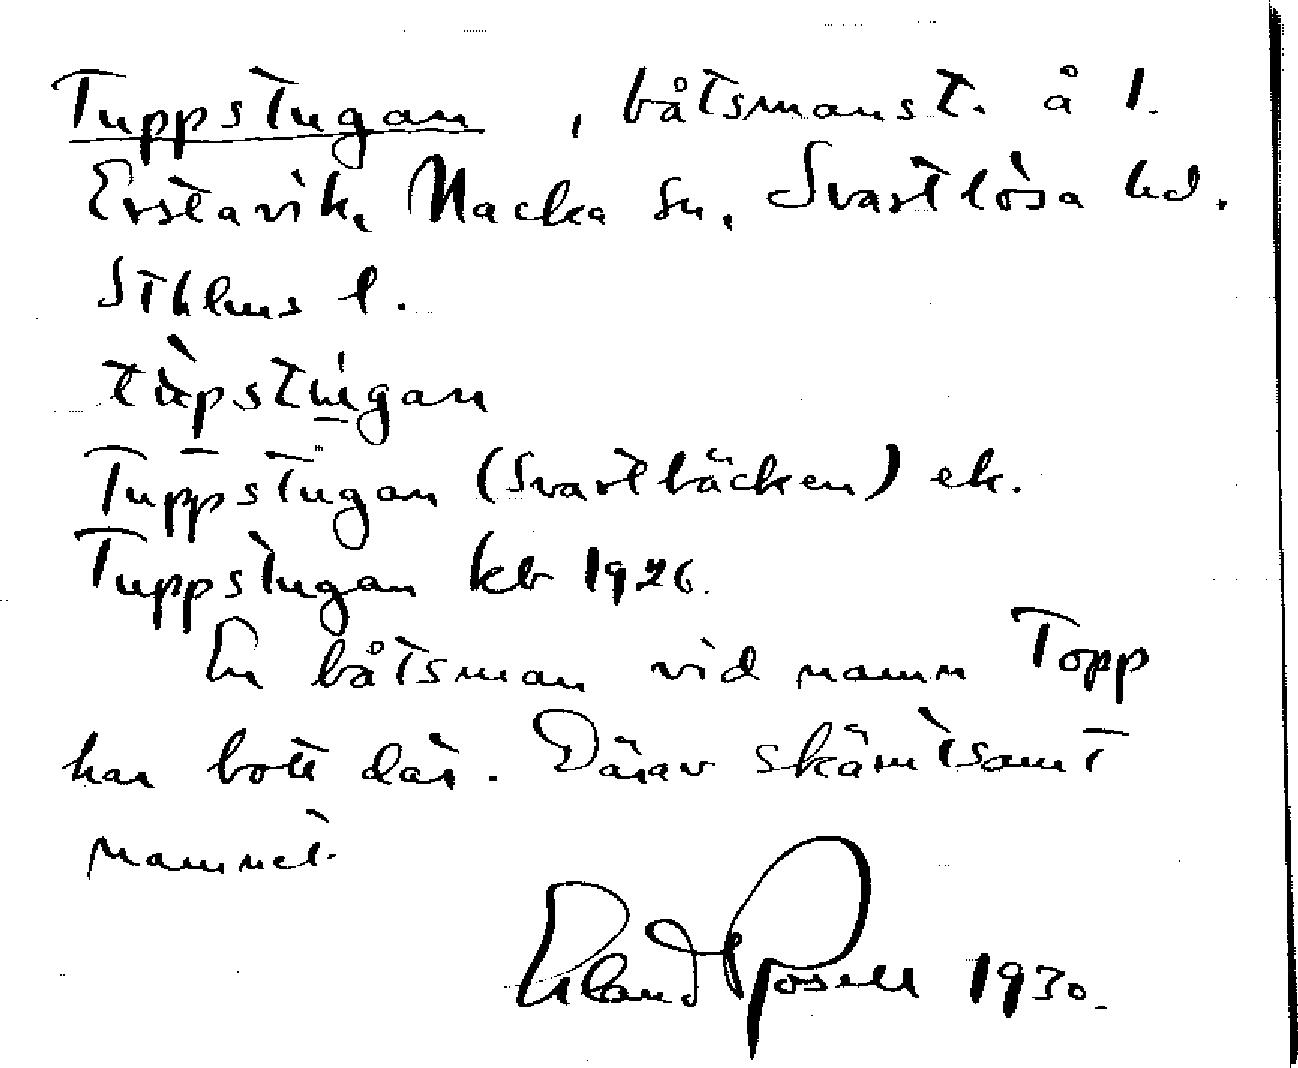 Tuppstugan, båtsmanst. å l.
Erstavik, Nacka sn, Svartlösa hd.
Sthlms l.
tùpstúgan
Tuppstugan (Svartbäcken) ek.
Tuppstugan kb 1926.
En båtsman vid namn Topp
har bott där. Därav skämtsamt
namnet.
Erland Rosell 1930.